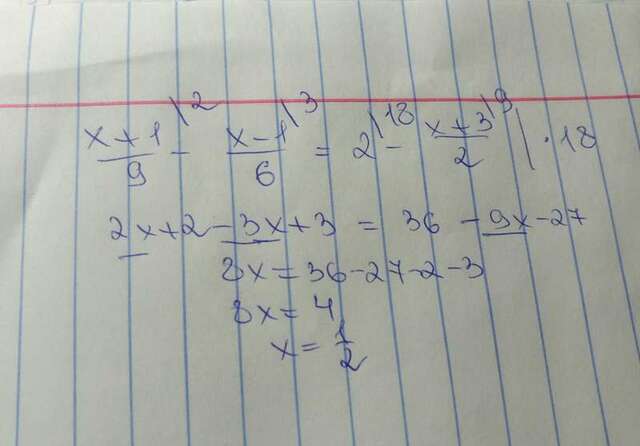 (x+1)/9 \2 - (x-1)/6 \3 = 2 \18 - (x+3)/2 \9 | · 18
2x+2-3x+3 = 36 - 9x-27
8x=36-27-2-3
8x=4
x=1/2